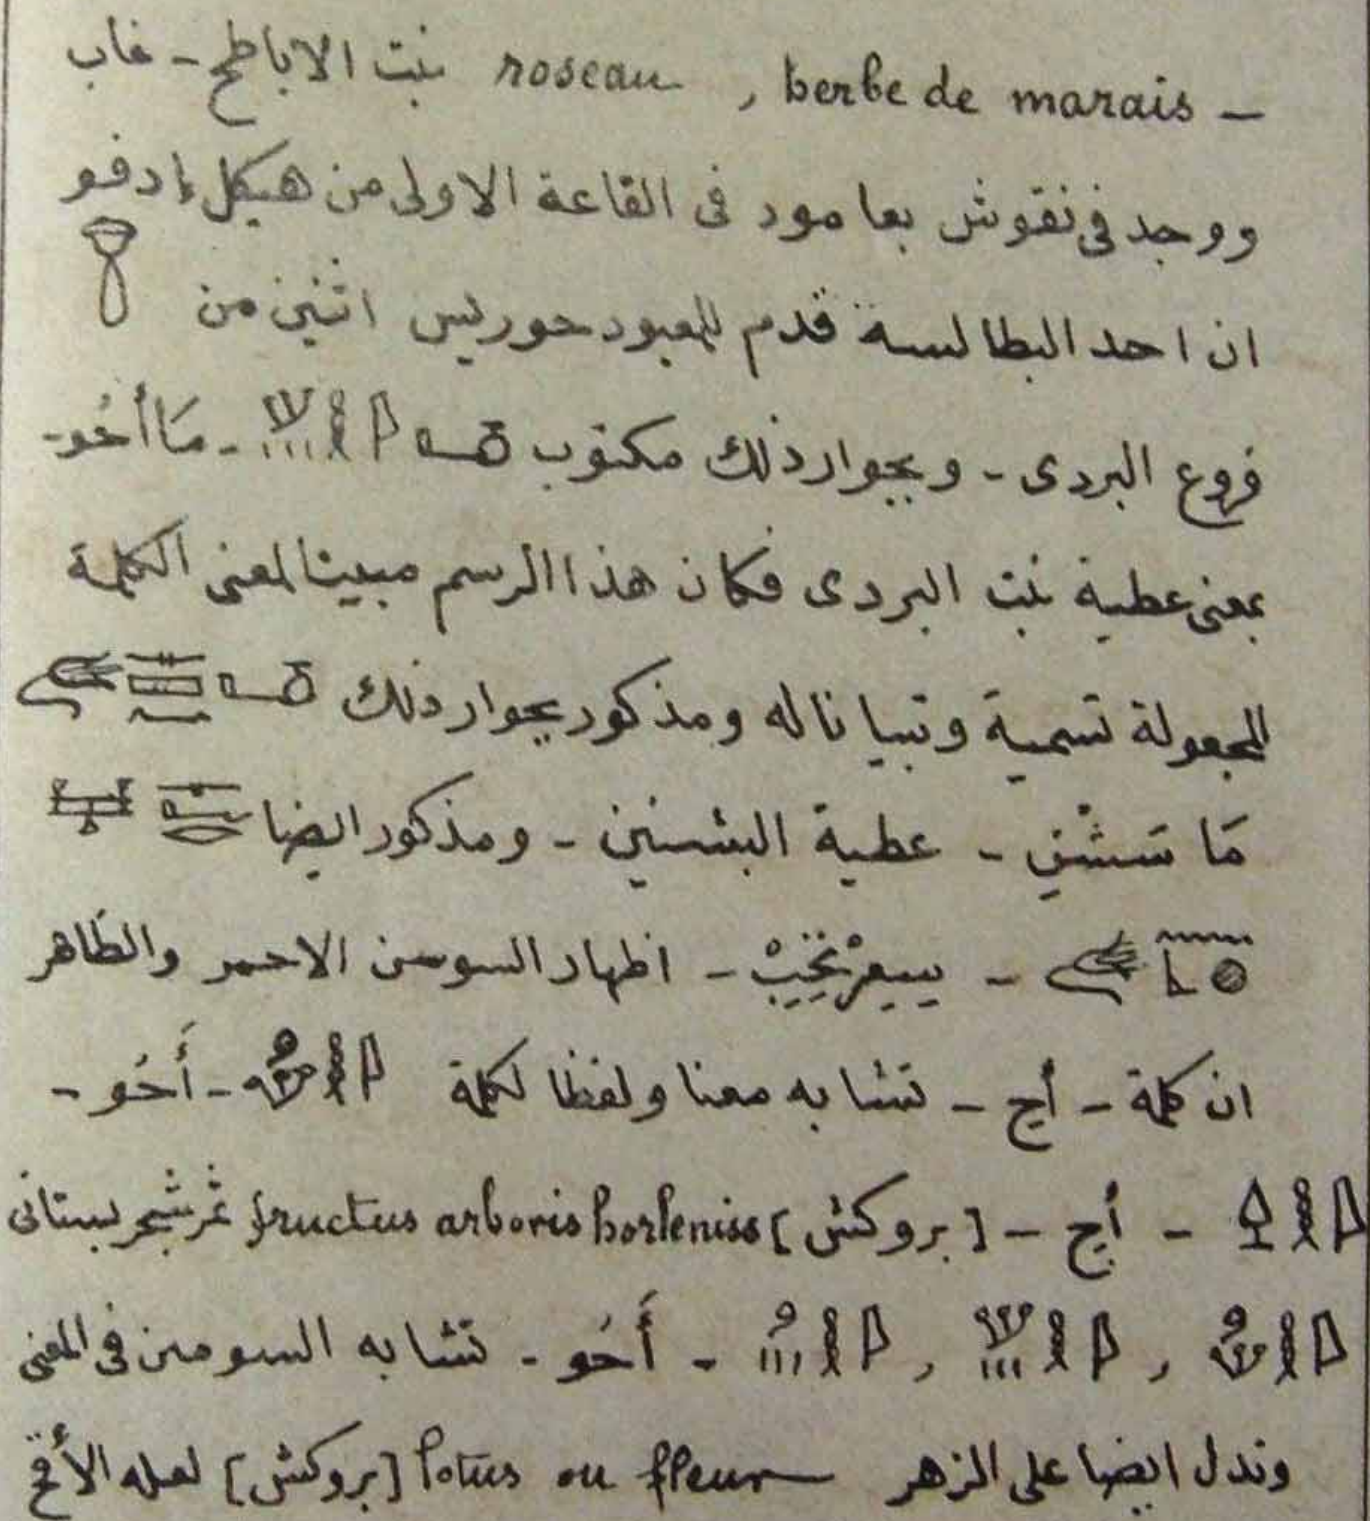 — roseau , herbe de marais نبت الاباطح - غاب
ووجد فى نقوش بعامود فى القاعة الاولى من هيكل إدفو
ان احد البطالسة قدم للمعبود حوريس اثنين من
فروع البردى - وبجوار ذلك مكتوب - مَا أخُو -
بمعنى عطية نبت البردى فكان هذا الرسم مبينا لمعنى الكلمة
المجعولة تسمية وتبيانا له ومذكور بجوار ذلك
مَا سَشْنِ - عطية البشنين - ومذكور ايضا
- اظهار السوسن الاحمر والظاهر
ان كلمة - أج - تشابه معنا ولفظا لكلمة - أَحُو -
- أج - [بروكش] fructus arboris hortensis ثمر شجر بستانى
, , - أَحُو - تشابه السوسن فى المعنى
وتدل ايضا على الزهر lotus ou fleur [بروكش] لعله الأقح